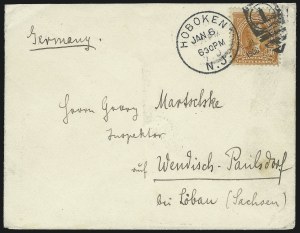 Germany.
HOBOKEN
JAN 6
630PM
N.J.
Herrn Georg Martschke
Inspektor
auf Wendisch-Paulsdorf
bei Löbau (Sachsen)